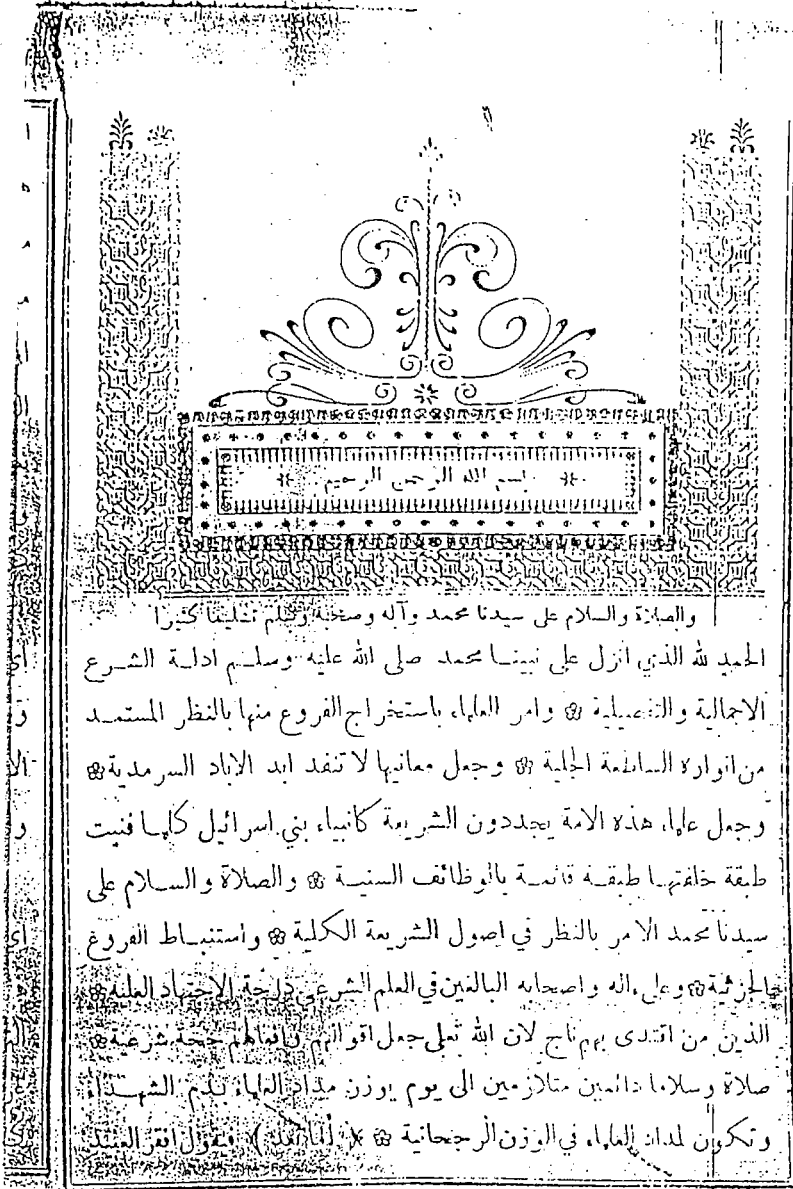 بسم الله الرحمن الرحيم
والصلاة والسلام على سيدنا محمد وآله وصحبه وسلم تسليما كثيرا
الحمد لله الذي انزل على نبينا محمد صلى الله عليه وسلم ادلة الشرع
الاجمالية والتفصيلية ۞ وامر العلماء باستخراج الفروع منها بالنظر المستمد
من انواره الساطعة الجلية ۞ وجعل معانيها لا تنفد ابد الاباد السرمدية ۞
وجعل علماء هذه الامة يجددون الشريعة كانبياء بني اسرائيل كلما فنيت
طبقة خلفتها طبقة قائمة بالوظائف السنية ۞ والصلاة والسلام على
سيدنا محمد الامر بالنظر في اصول الشريعة الكلية ۞ واستنباط الفروع
الجزئية ۞ وعلى اله واصحابه البالغين في العلم الشرعي درجة الاجتهاد العلية ۞
الذين من اقتدى بهم ناج لان الله تعلى جعل اقوالهم وافعالهم حجة شرعية ۞
صلاة وسلاما دائمين متلازمين الى يوم يوزن مداد العلماء بدم الشهداء
وتكون لمداد العلماء في الوزن الرجحانية ۞ ( أما بعد ) فيقول افقر العبيد